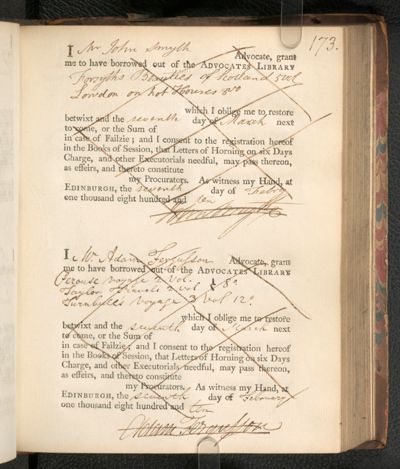 173.
I Mr John Smyth Advocate, grant
me to have borrowed out of the ADVOCATES LIBRARY
Forsyths Beauties of Scotland 5 vol
Loudon on hot Houses 8vo
which I oblige me to restore
betwixt and the seventh day of March next
to come, or the Sum of
in case of Failzie; and I consent to the registration hereof
in the Books of Session, that Letters of Horning on six Days
Charge, and other Executorials needful, may pass thereon,
as effeirs, and thereto constitute
my Procurators. As witness my Hand, at
EDINBURGH, the seventh day of Febry
one thousand eight hundred and ten
John Smyth
I Mr Adam Fergusson Advocate, grant
me to have borrowed out of the ADVOCATES LIBRARY
Perouse voyage 2 Vol.
Taylor travels 2 vol 8o
Turnbulls Voyage 3 Vol 12o
which I oblige me to restore
betwixt and the seventh day of March next
to come, or the Sum of
in case of Failzie; and I consent to the registration hereof
in the Books of Session, that Letters of Horning on six Days
Charge, and other Executorials needful, may pass thereon,
as effeirs, and thereto constitute
my Procurators. As witness my Hand, at
EDINBURGH, the seventh day of February
one thousand eight hundred and ten
Adam Fergusson